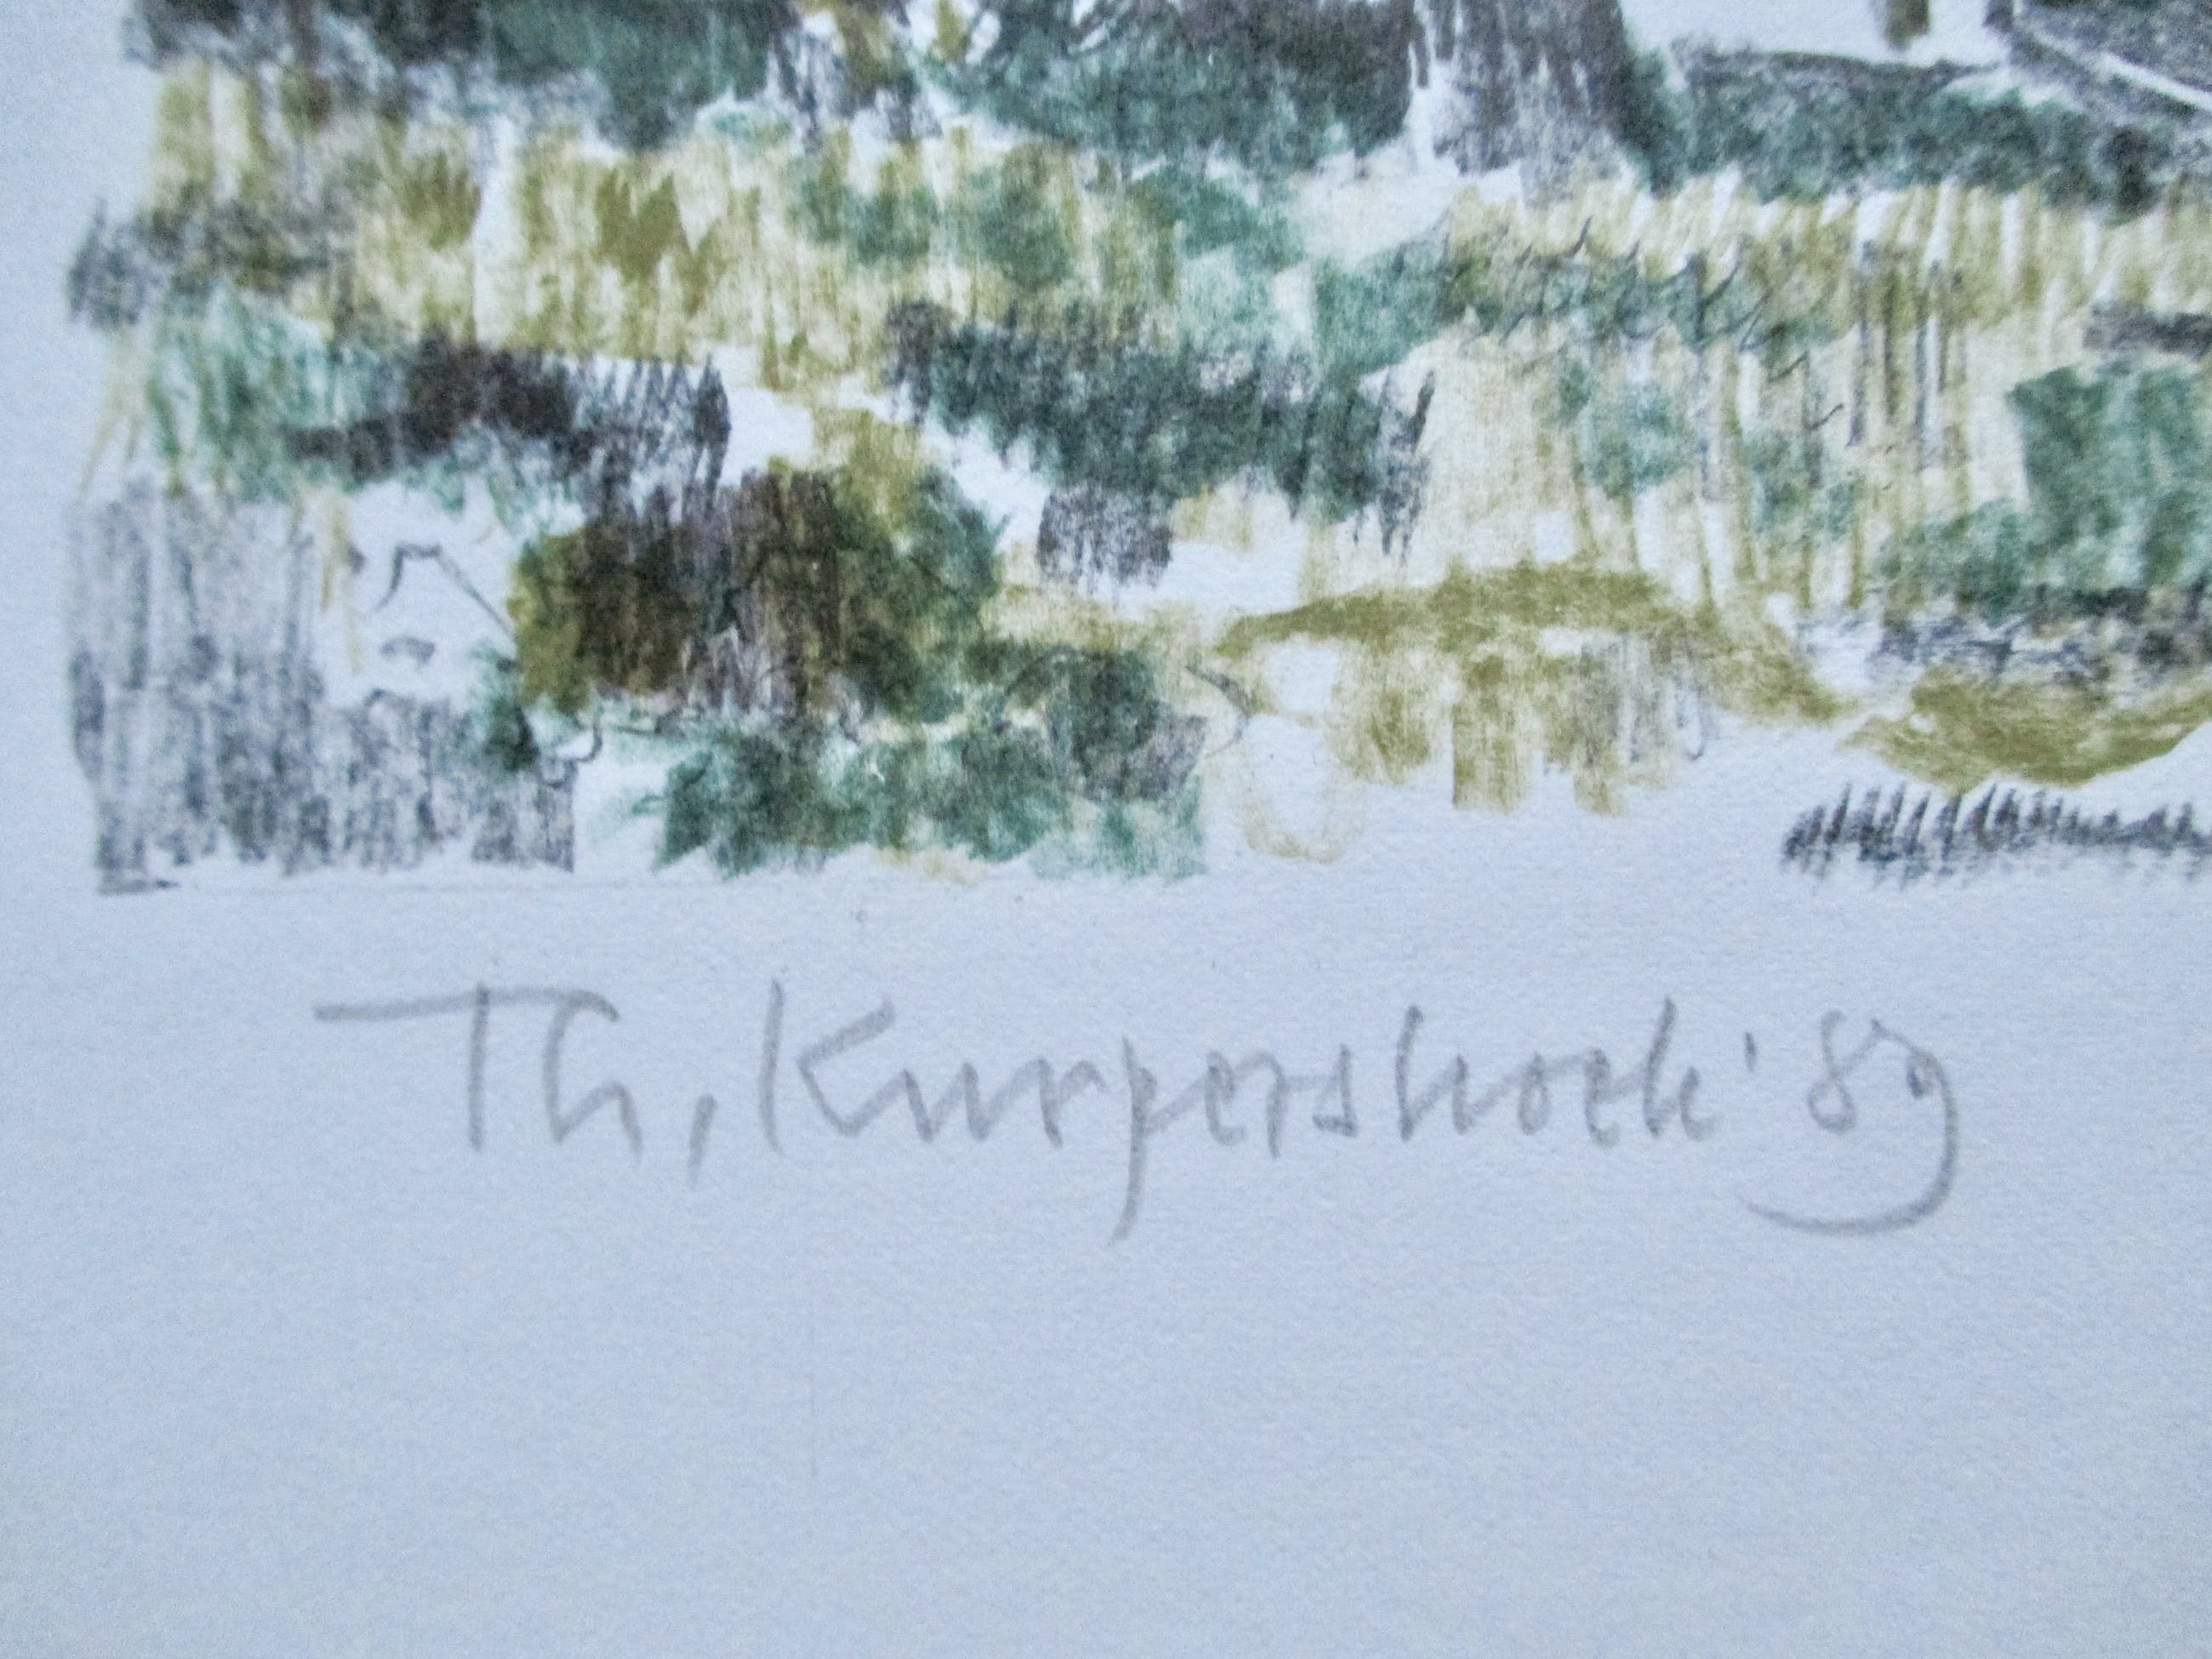 Th, Kurpershoek '89